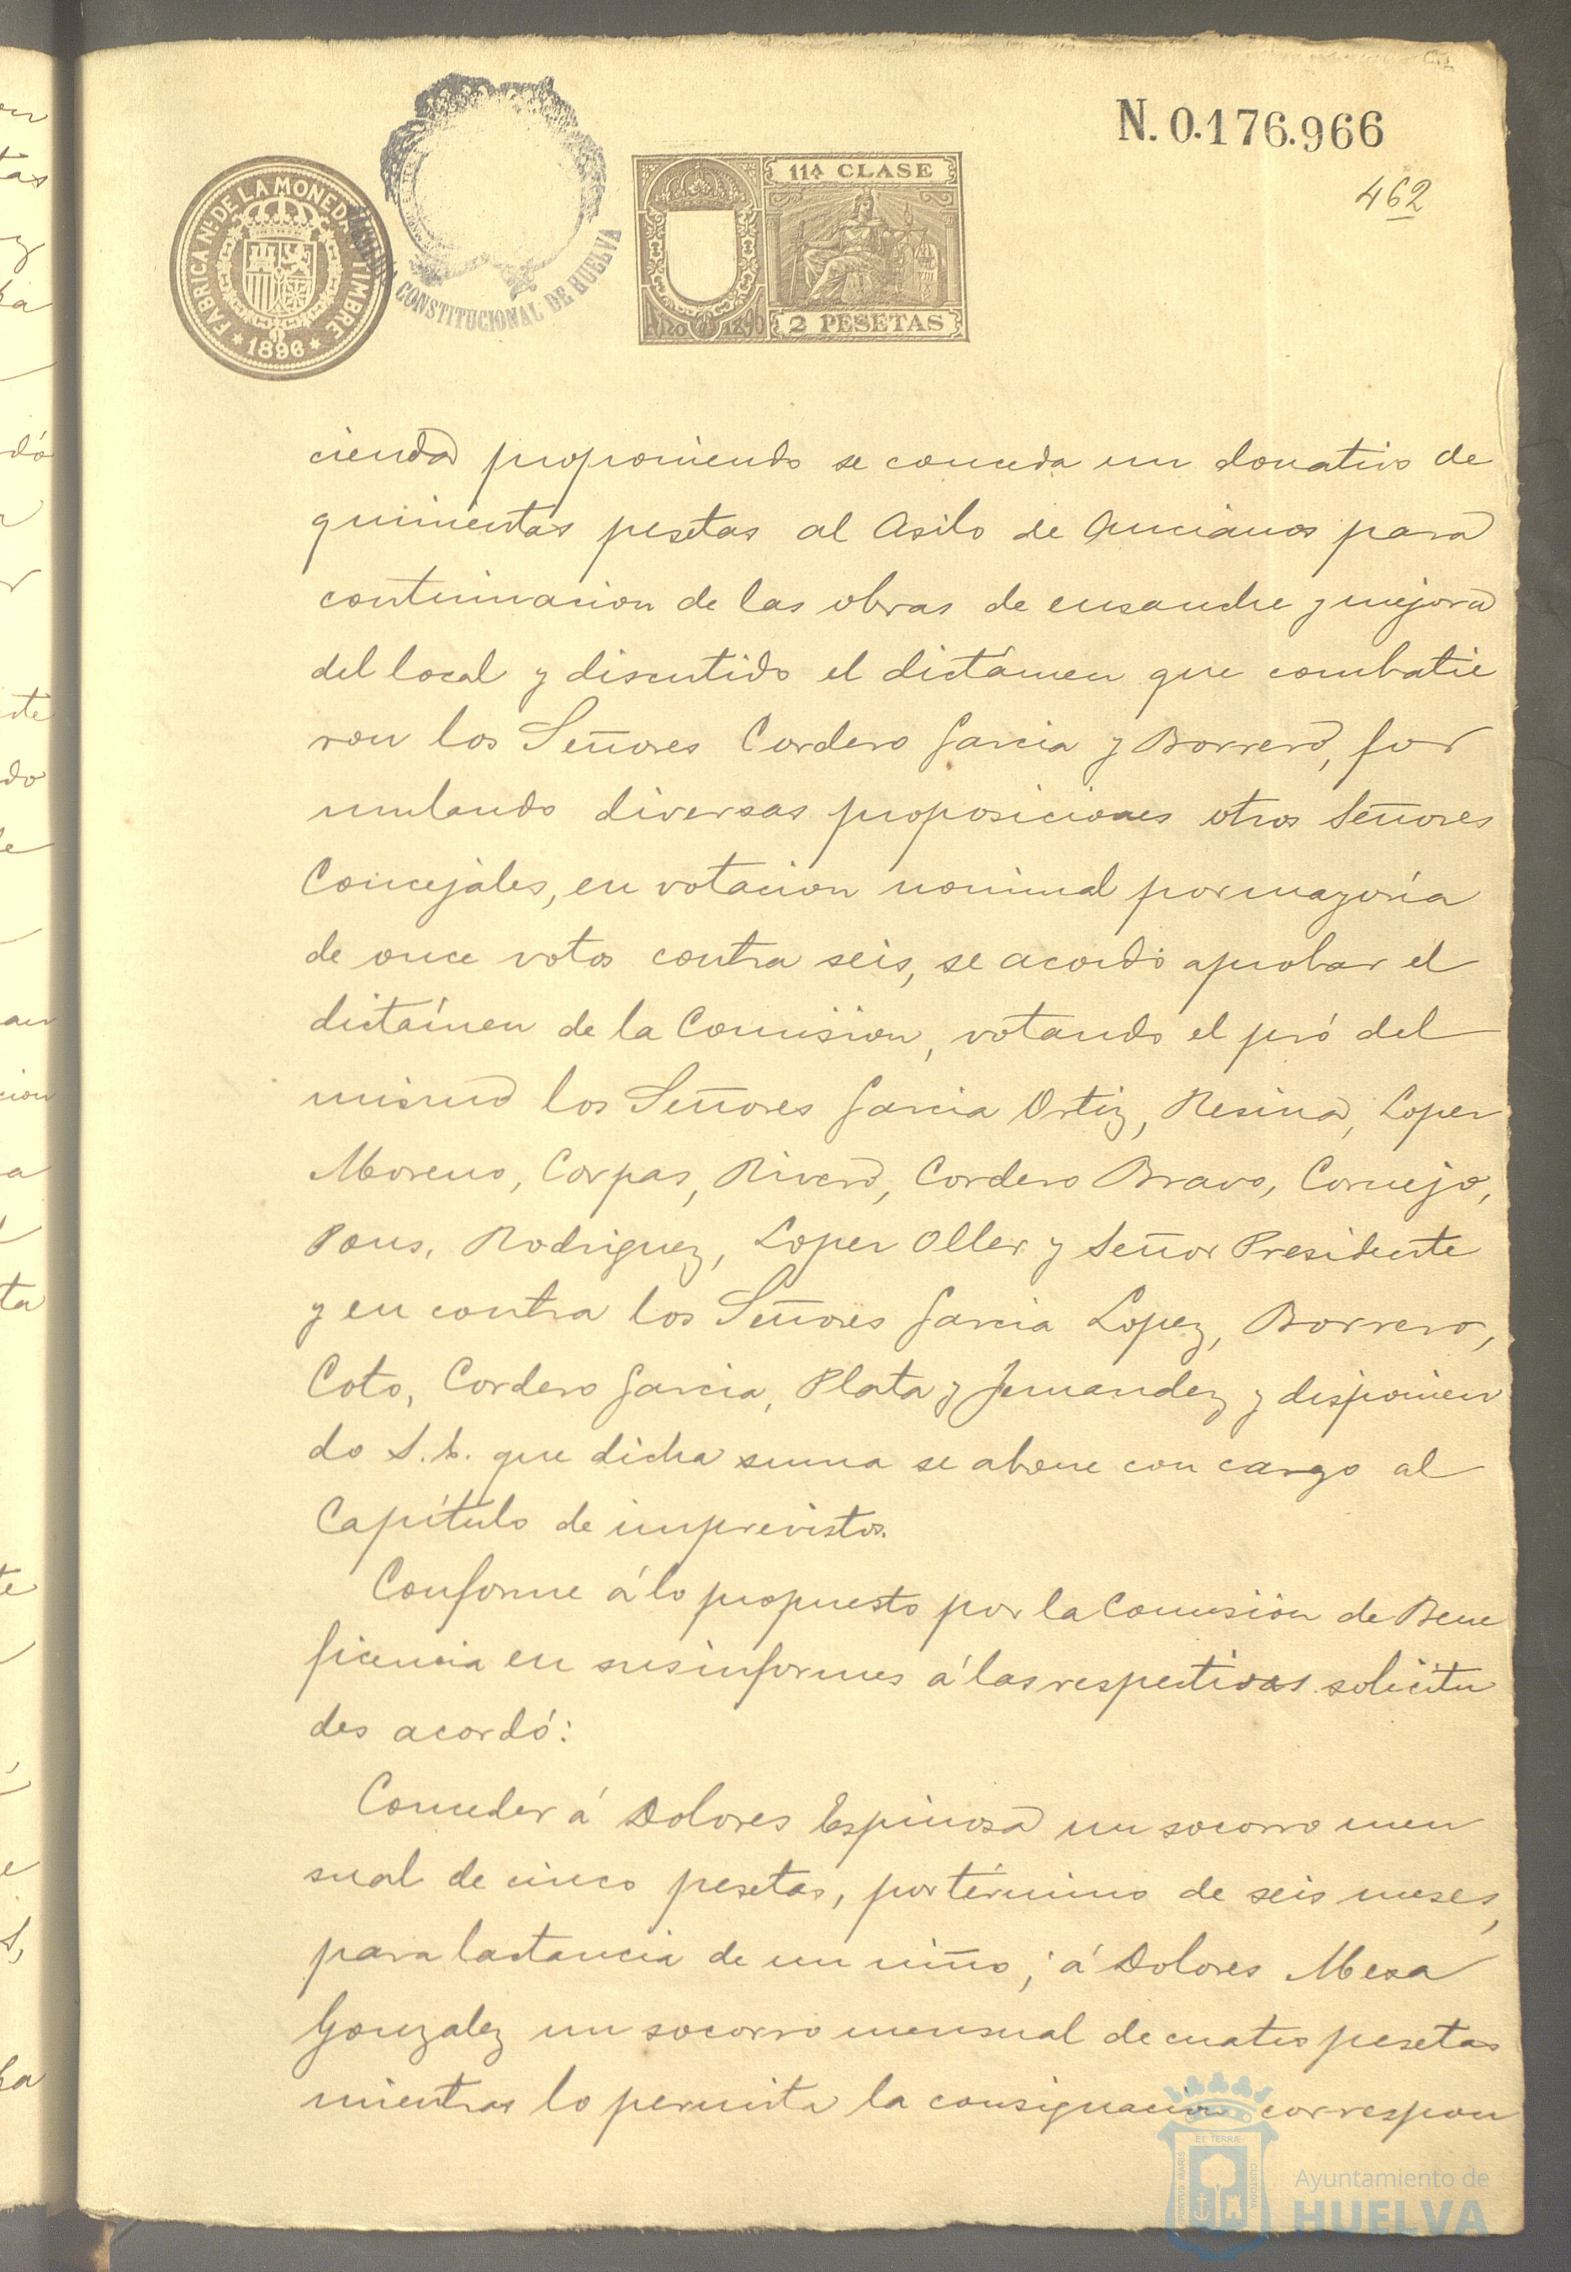 N. 0.176.966
462
FABRICA Nal. DE LA MONEDA Y TIMBRE
* 1896 *
CONSTITUCIONAL DE HUELVA
11ª CLASE
Año 1896
2 PESETAS
cienda proponiendo se conceda un donativo de
quinientas pesetas al Asilo de Ancianos para
continuacion de las obras de ensanche y mejora
del local y discutido el dictámen que combatie
ron los Señores Cordero Garcia y Borrero, for
mulando diversas proposiciones otros Señores
Concejales, en votacion nominal por mayoría
de once votos contra seis, se acordó aprobar el
dictámen de la Comision, votando el pró del
mismo los Señores Garcia Ortiz, Resina, Lopez
Moreno, Corpas, Rivero, Cordero Bravo, Cornejo,
Pons, Rodriguez, Lopez Oller y Señor Presidente
y en contra los Señores Garcia Lopez, Borrero,
Coto, Cordero Garcia, Plata y Fernandez y disponien
do S.E. que dicha suma se abone con cargo al
Capítulo de imprevistos.
Conforme á lo propuesto por la Comision de Bene
ficencia en sus informes á las respectivas solicitu
des acordó:
Conceder á Dolores Espinosa un socorro men
sual de cinco pesetas, por término de seis meses,
para lactancia de un niño; á Dolores Mesa
Gonzalez un socorro mensual de cuatro pesetas
mientras lo permita la consignacion correspon
Ayuntamiento de
HUELVA